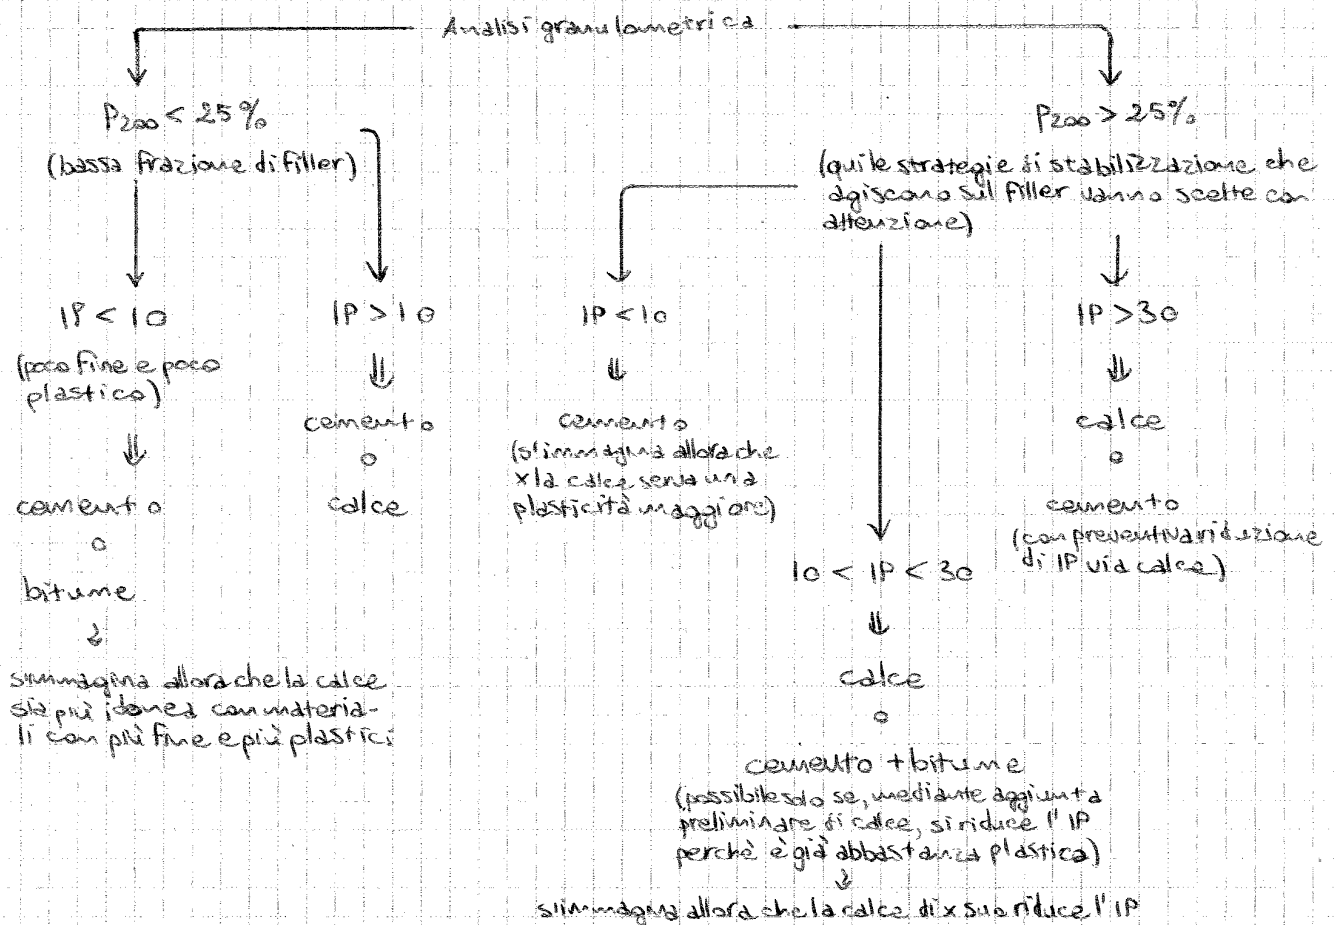 Analisi granulometrica
P200 < 25%
(bassa frazione di filler)
IP < 10
(poco fine e poco
plastico)
⇓
cemento
o
bitume
↓
s'immagina allora che la calce
sia più idonea con materia-
li con più fine e più plastici
IP > 10
⇓
cemento
o
calce
P200 > 25%
(qui le strategie di stabilizzazione che
agiscono sul filler vanno scelte con
attenzione)
IP < 10
⇓
cemento
(s'immagina allora che
x la calce serva una
plasticità maggiore)
10 < IP < 30
⇓
calce
o
cemento + bitume
(possibile solo se, mediante aggiunta
preliminare di calce, si riduce l'IP
perchè è già abbastanza plastica)
↓
s'immagina allora che la calce di x suo riduce l'IP
IP > 30
⇓
calce
o
cemento
(con preventiva riduzione
di IP via calce)